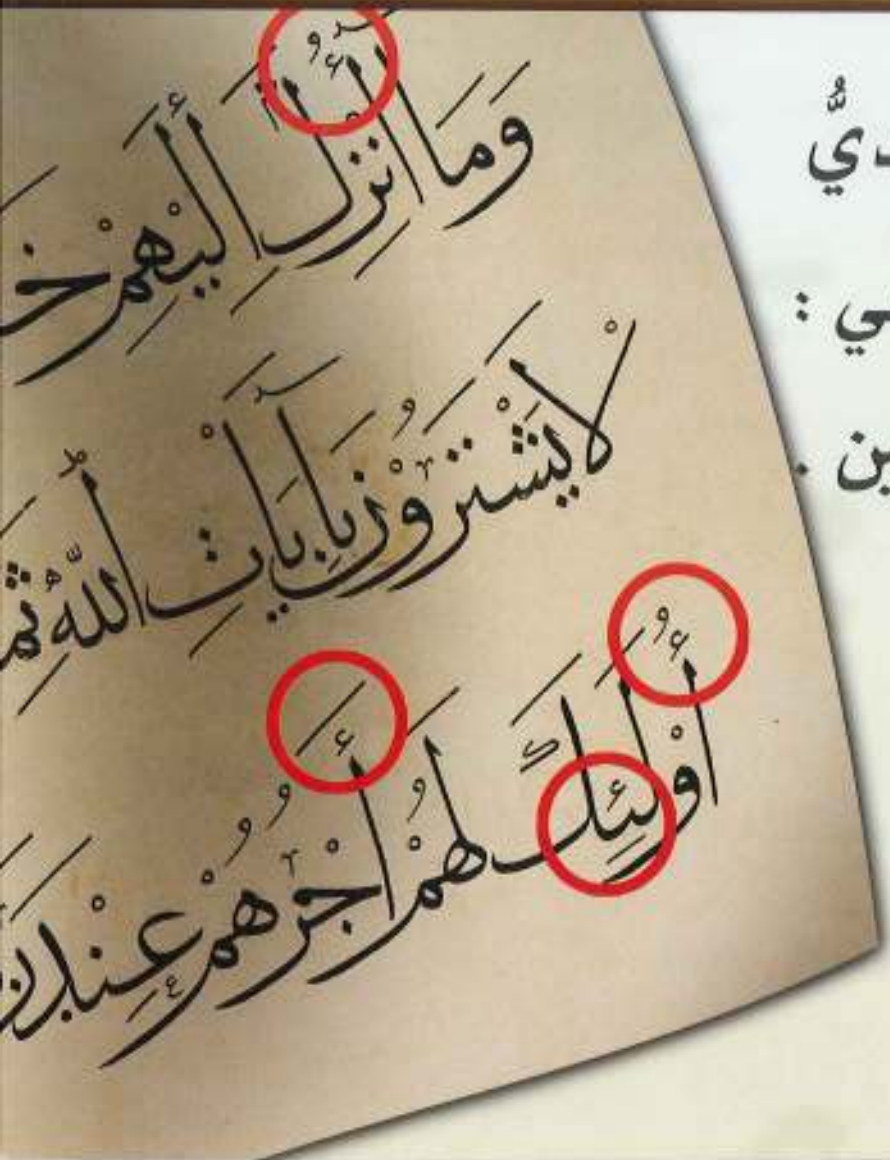 وَمَا أُنْزِلَ إِلَيْهِمْ خَ
لَا يَشْتَرُونَ بِآيَاتِ اللَّهِ ثَم
أُولَئِكَ لَهُمْ أَجْرُهُمْ عِنْدَ رَ
ديُّ
ي :
ين .